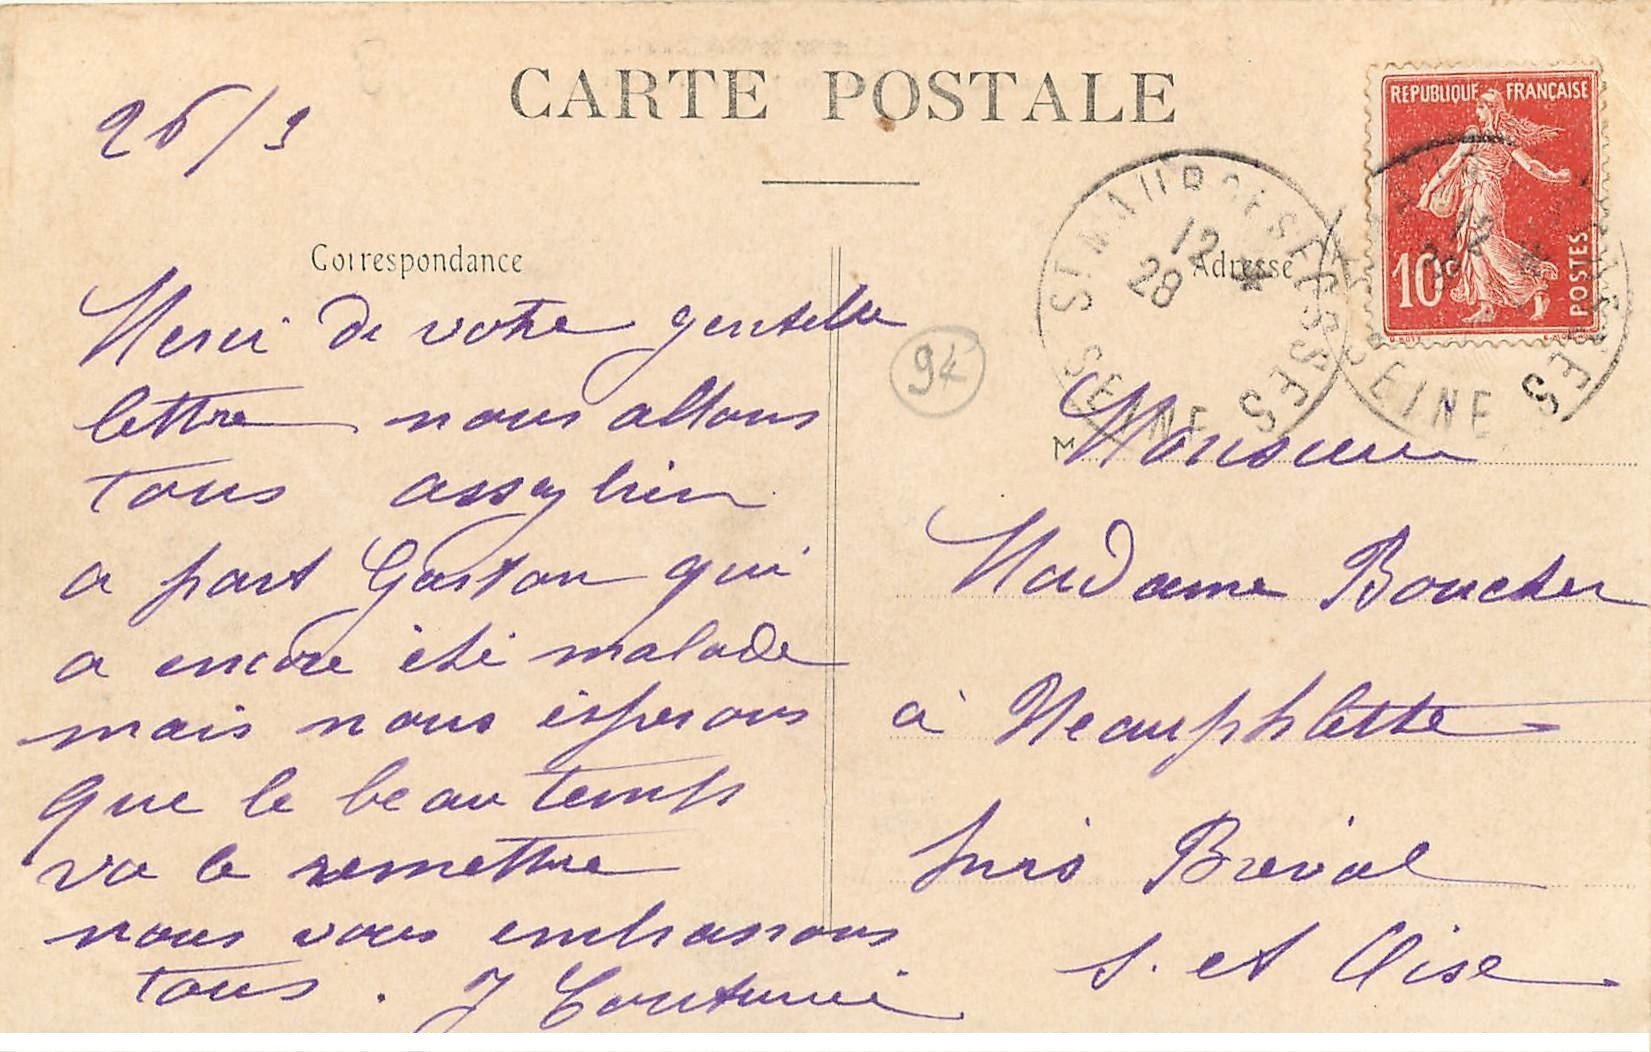 CARTE POSTALE
26/3
REPUBLIQUE FRANÇAISE
10c
POSTES
ST MAUR DES FOSSES
12
28
*
SEINE
Correspondance
Merci de votre gentille
lettre nous allons
tous assez bien
a part Gaston qui
a encore été malade
mais nous esperons
que le beau temps
va le remettre
nous vous embrassons
tous. J
94
Adresse
M
Monsieur
Madame Boucher
à Neauphlette
Bréval
S. et Oise